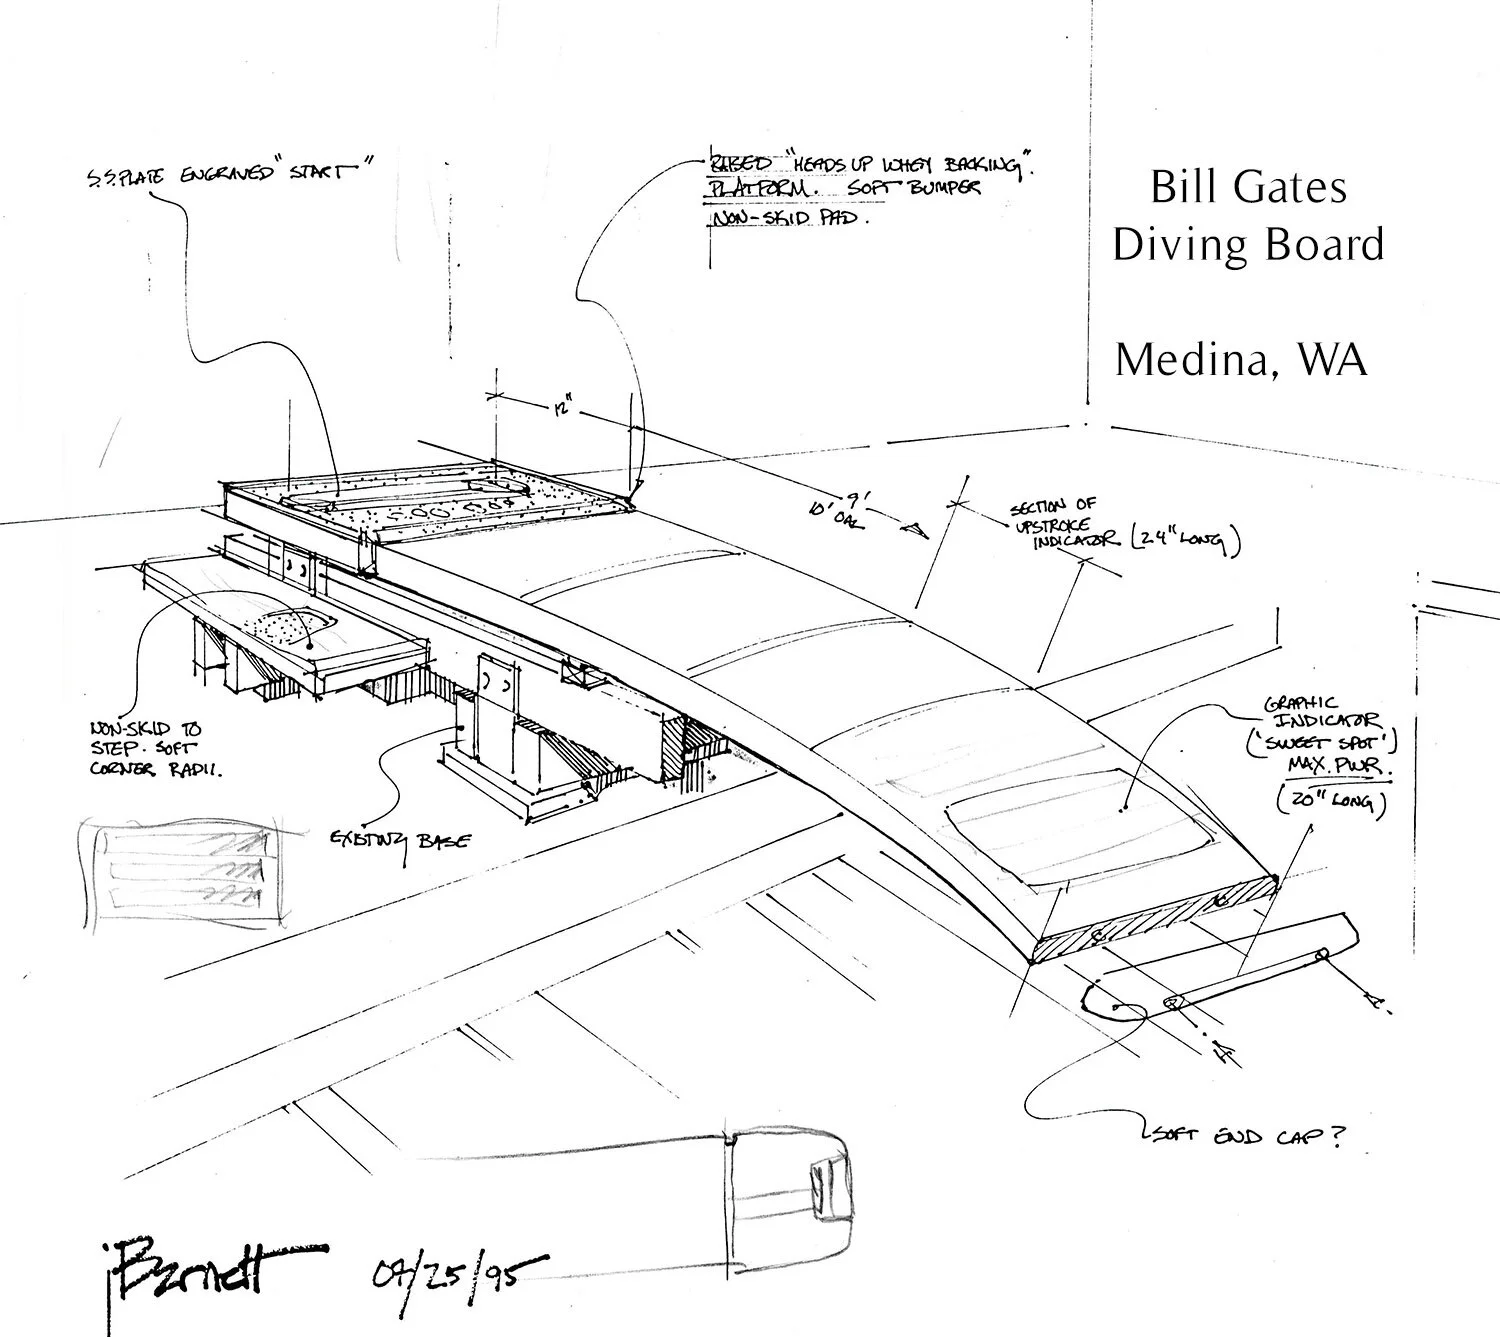 S.S. PLATE ENGRAVED "START"
RAISED "HEADS UP WHEN BACKING".
PLATFORM. SOFT BUMPER
NON-SKID PAD.
Bill Gates
Diving Board
Medina, WA
12"
9'
10' OAL
SECTION OF
UPSTROKE
INDICATOR (24" LONG)
GRAPHIC
INDICATOR
('SWEET SPOT')
MAX. PWR.
(20" LONG)
NON-SKID TO
STEP. SOFT
CORNER RADII.
EXISTING BASE
SOFT END CAP?
jBarnett 04/25/95